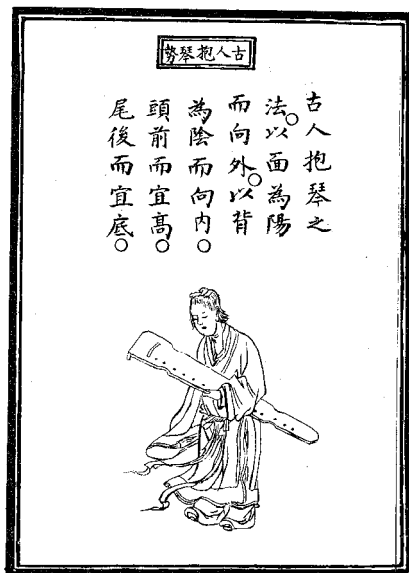 古人抱琴勢
古人抱琴之
法。以面為陽
而向外。以背
為陰而向内。
頭前而宜高。
尾後而宜底。